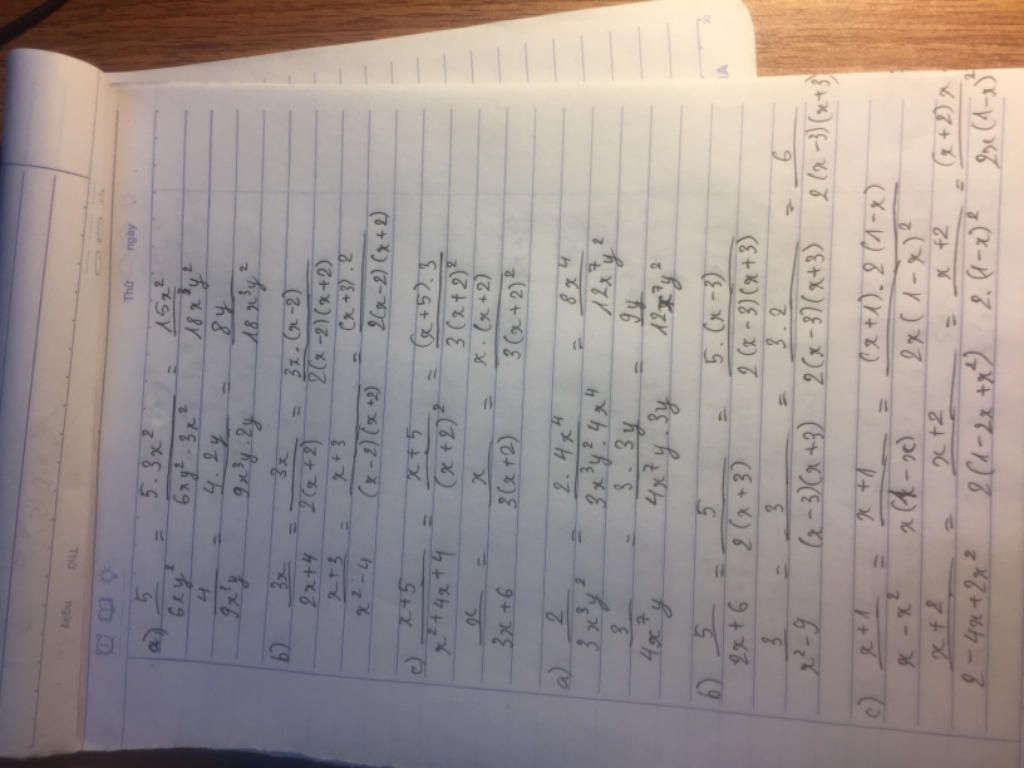 Thứ ngày
a) 5/6xy² = 5.3x²/6xy².3x² = 15x²/18x³y²
4/9x³y = 4.2y/9x³y.2y = 8y/18x³y²
b) 3x/2x+4 = 3x/2(x+2) = 3x.(x-2)/2(x-2)(x+2)
x+3/x²-4 = x+3/(x-2)(x+2) = (x+3).2/2(x-2)(x+2)
c) x+5/x²+4x+4 = x+5/(x+2)² = (x+5).3/3(x+2)²
x/3x+6 = x/3(x+2) = x.(x+2)/3(x+2)²
a) 2/3x³y² = 2.4x⁴/3x³y².4x⁴ = 8x⁴/12x⁷y²
3/4x⁷y = 3.3y/4x⁷y.3y = 9y/12x⁷y²
b) 5/2x+6 = 5/2(x+3) = 5.(x-3)/2(x-3)(x+3)
3/x²-9 = 3/(x-3)(x+3) = 3.2/2(x-3)(x+3) = 6/2(x-3)(x+3)
c) x+1/x-x² = x+1/x(1-x) = (x+1).2(1-x)/2x(1-x)²
x+2/2-4x+2x² = x+2/2(1-2x+x²) = x+2/2.(1-x)² = (x+2)x/2x(1-x)²